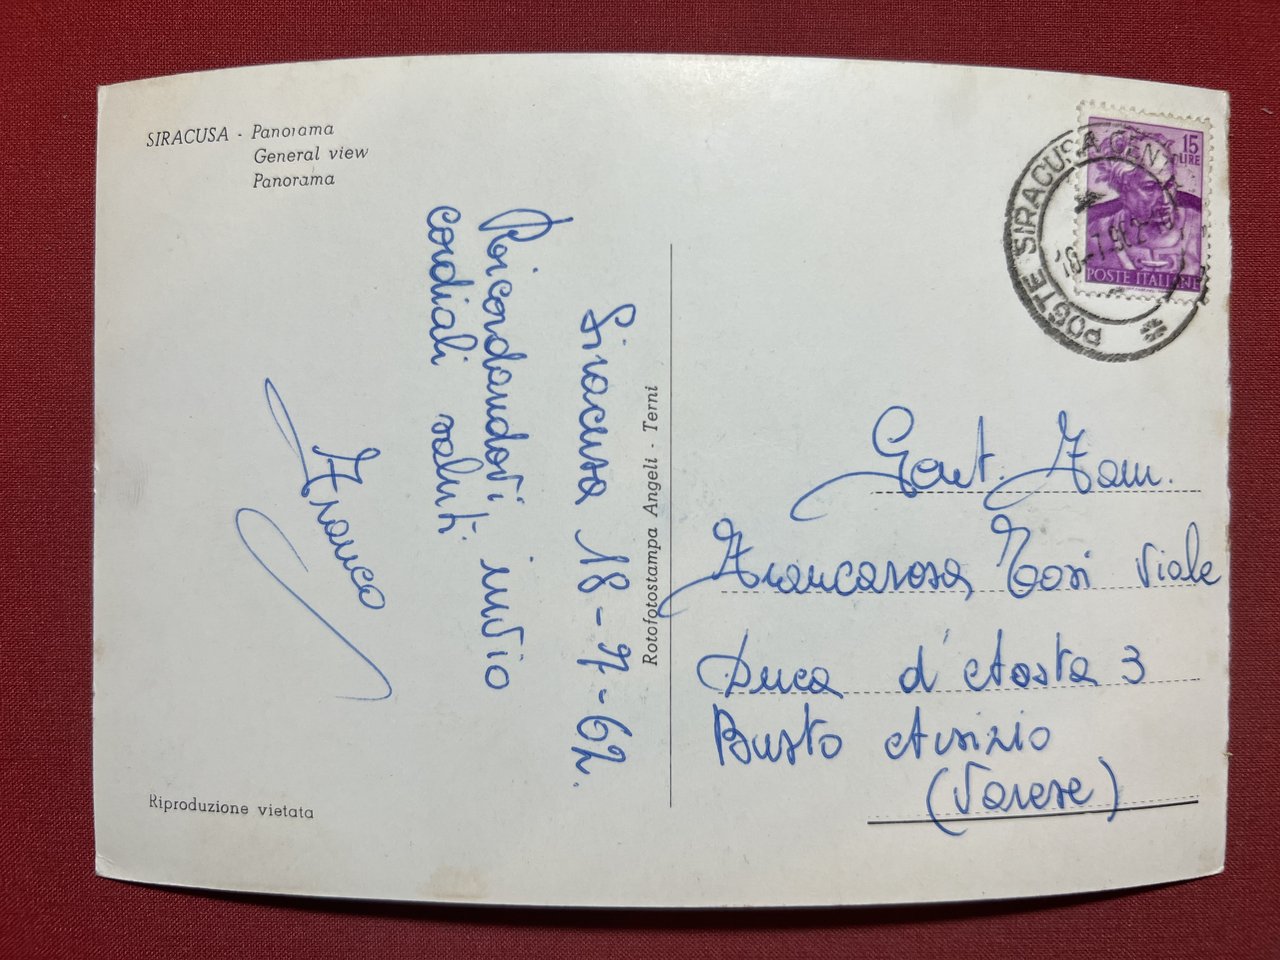 SIRACUSA - Panorama
General view
Panorama
Siracusa 18-7-62.
Ricordandovi invio
cordiali saluti.
Franco
Riproduzione vietata
Rotofotostampa Angeli - Terni
15
LIRE
POSTE ITALIANE
POSTE SIRACUSA CENTR
Gent. Fam.
Francarosa Tosi Viale
Duca d'Aosta 3
Busto Arsizio
(Varese)